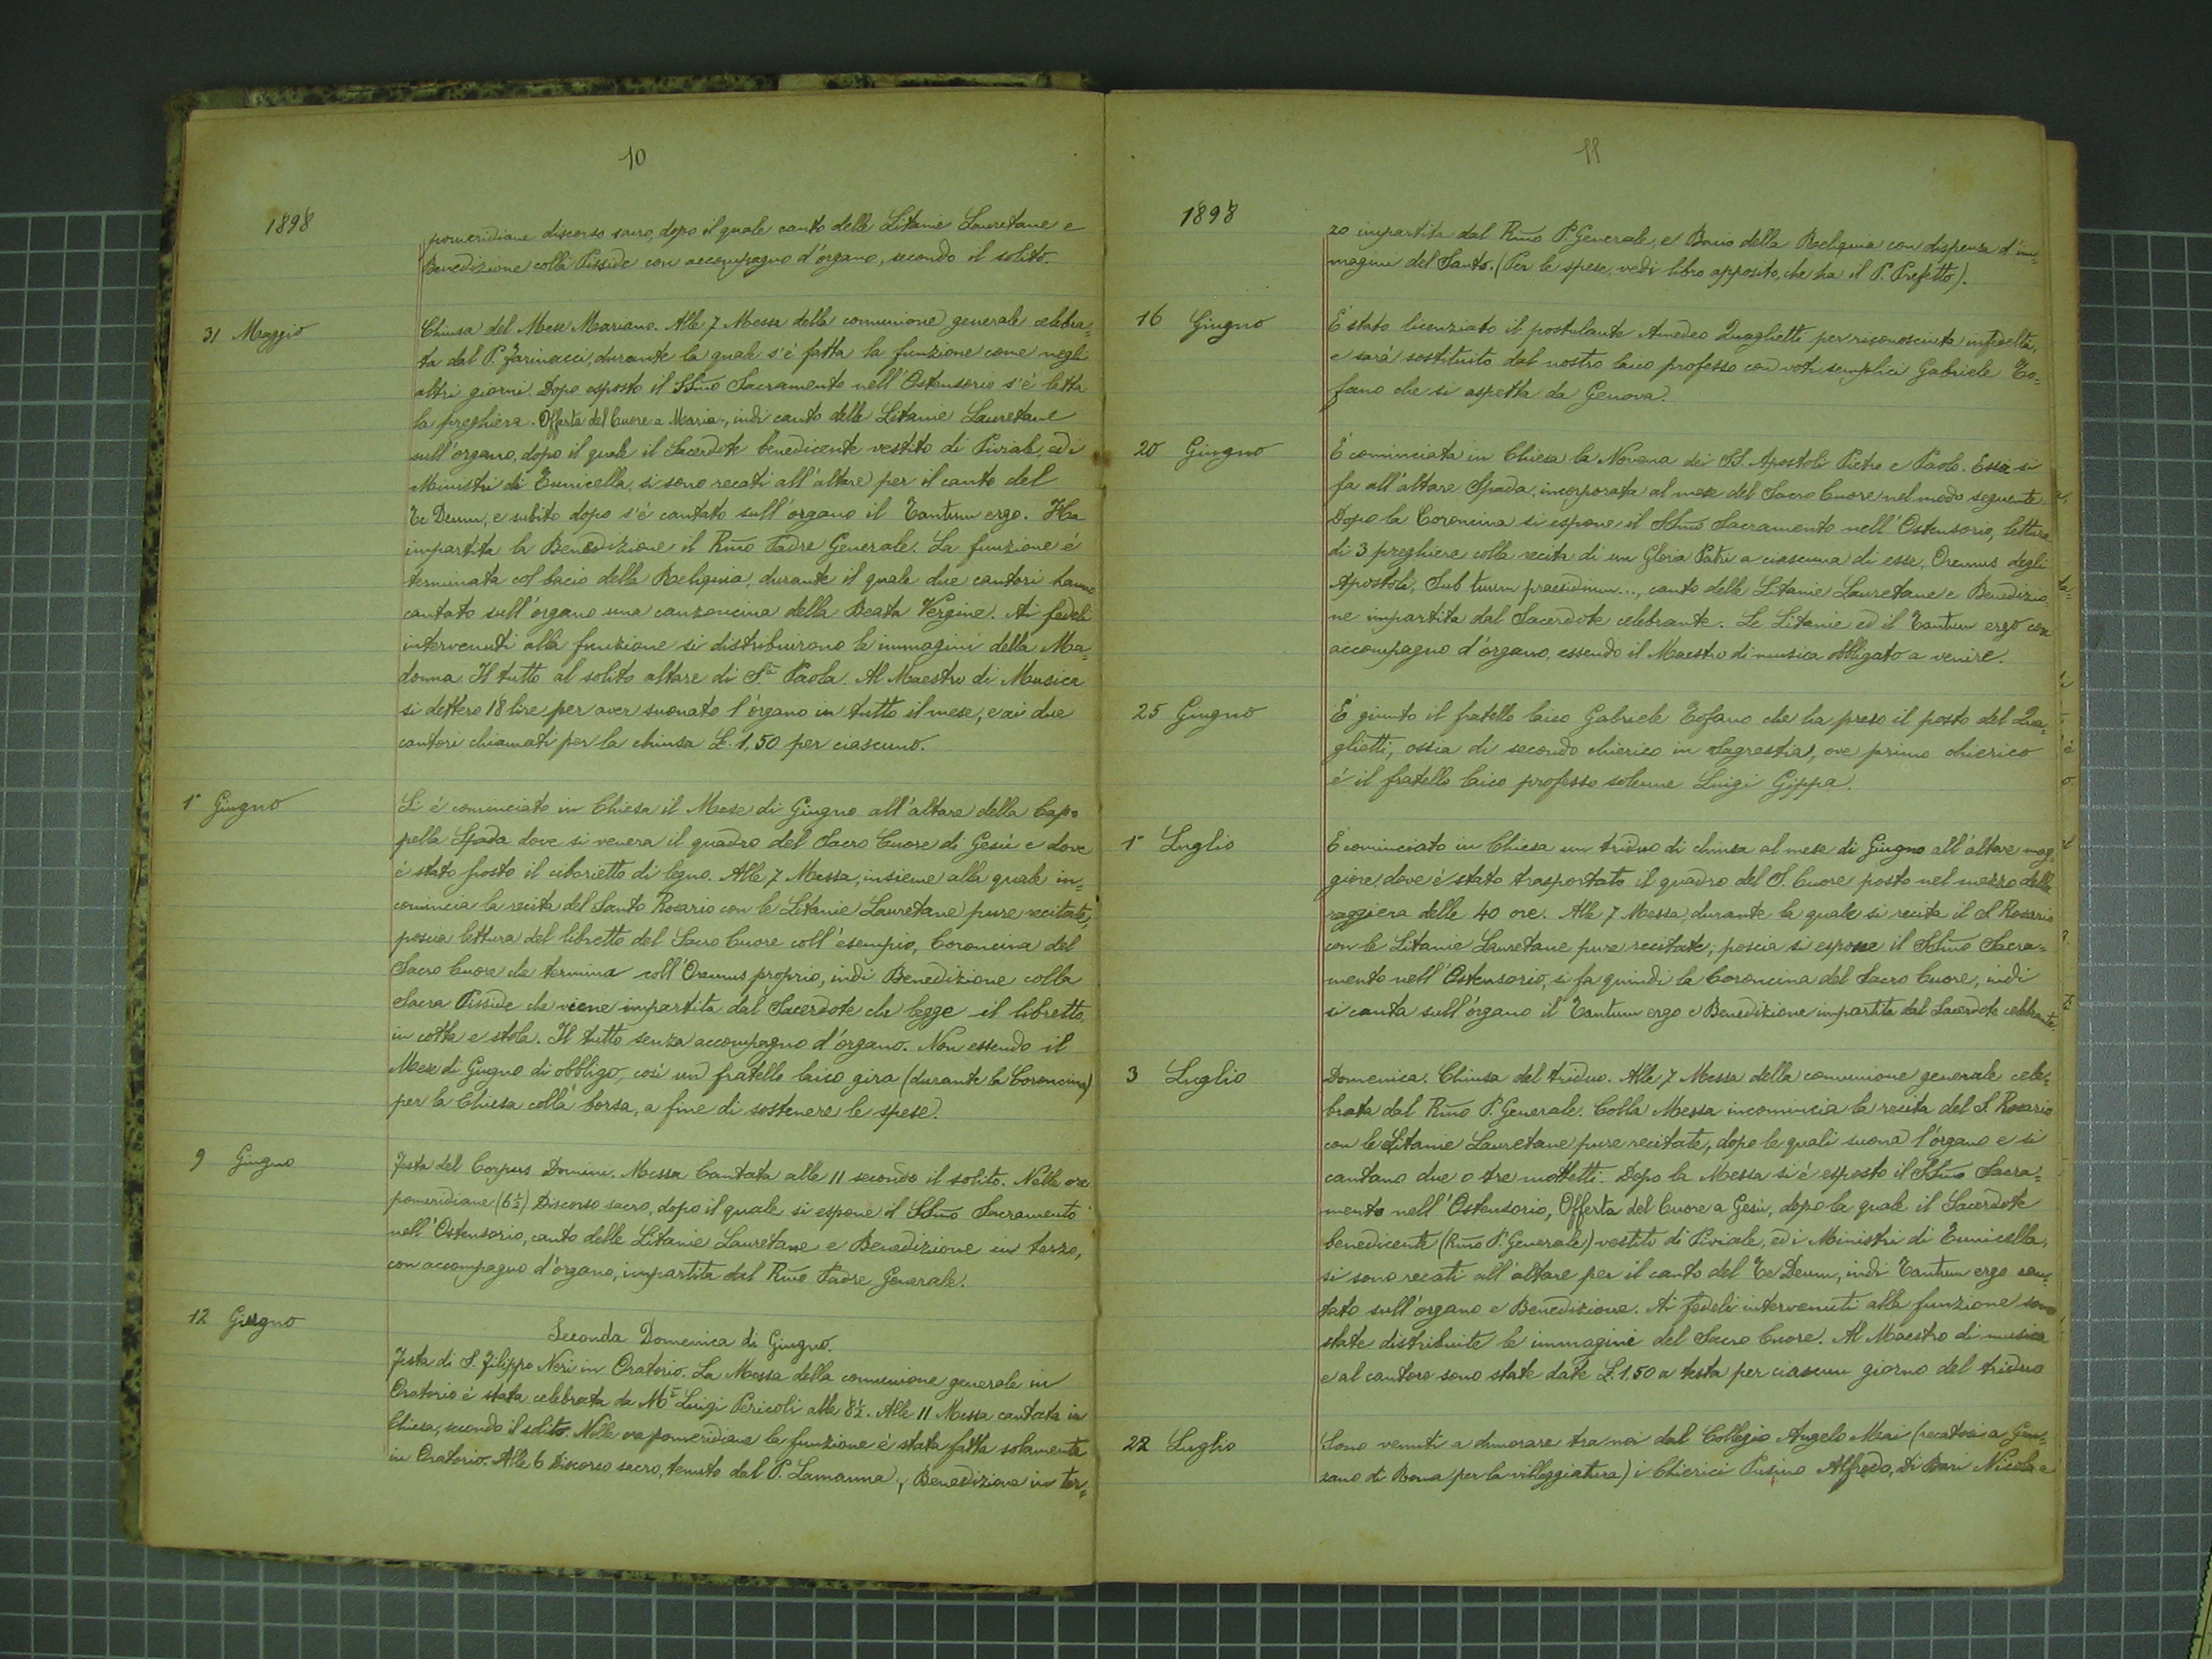 10
1898
pomeridiane discorso sacro, dopo il quale canto delle Litanie Lauretane e
Benedizione colla Pisside con accompagno d'organo, secondo il solito.
31 Maggio
Chiusa del Mese Mariano. Alle 7 Messa della comunione generale celebra=
ta dal P. Farinacci, durante la quale s'è fatta la funzione come negli
altri giorni. Dopo esposto il SSmo Sacramento nell'Ostensorio s'è letta
la preghiera. Offerta del Cuore a Maria-, indi canto delle Litanie Lauretane
sull'organo, dopo il quale il Sacerdote benedicente vestito di Piviale, ed i
Ministri di Tunicella, si sono recati all'altare per il canto del
Te Deum, e subito dopo s'è cantato sull'organo il Tantum ergo. Ha
impartita la Benedizione il Rmo Padre Generale. La funzione è
terminata col bacio della Reliquia, durante il quale due cantori hanno
cantato sull'organo una canzoncina della Beata Vergine. Ai fedeli
intervenuti alla funzione si distribuirono le immagini della Ma=
donna. Il tutto al solito altare di S.a Paola. Al Maestro di Musica
si dettero 18 lire per aver suonato l'organo in tutto il mese, e ai due
cantori chiamati per la chiusa £. 1,50 per ciascuno.
1° Giugno
Si è cominciato in Chiesa il Mese di Giugno all'altare della Cap=
pella Spada dove si venera il quadro del Sacro Cuore di Gesù e dove
è stato posto il ciborietto di legno. Alle 7 Messa, insieme alla quale in=
comincia la recita del Santo Rosario con le Litanie Lauretane pure recitate,
poscia lettura del libretto del Sacro Cuore coll'esempio, Coroncina del
Sacro Cuore che termina coll'Oremus proprio, indi Benedizione colla
Sacra Pisside che viene impartita dal Sacerdote che legge il libretto,
in cotta e stola. Il tutto senza accompagno d'organo. Non essendo il
Mese di Giugno di obbligo, così un fratello laico gira (durante la Coroncina)
per la Chiesa colla borsa, a fine di sostenere le spese.
9 Giugno
Festa del Corpus Domini. Messa Cantata alle 11 secondo il solito. Nelle ore
pomeridiane (6 ½) Discorso sacro, dopo il quale si espone il SSmo Sacramento
nell'Ostensorio, canto delle Litanie Lauretane e Benedizione in terzo,
con accompagno d'organo, impartita dal Rmo Padre Generale.
12 Giugno
Seconda Domenica di Giugno.
Festa di S. Filippo Neri in Oratorio. La Messa della comunione generale in
Oratorio è stata celebrata da Mr Luigi Pericoli alle 8½. Alle 11 Messa cantata in
Chiesa, secondo il solito. Nelle ore pomeridiane la funzione è stata fatta solamente
in Oratorio. Alle 6 Discorso sacro, tenuto dal P. Lamanna, Benedizione in ter=
11
1898
zo impartita dal Rmo P. Generale, e Bacio della Reliquia con dispensa d'im=
magini del Santo. (Per le spese, vedi libro apposito, che ha il P. Prefetto).
16 Giugno
È stato licenziato il postulante Amedeo Quaglietti per riconosciuta infedeltà,
e sarà sostituito dal nostro laico professo con voti semplici Gabriele To=
fano che si aspetta da Genova.
20 Giugno
È cominciata in Chiesa la Novena dei SS. Apostoli Pietro e Paolo. Essa si
fa all'altare Spada, incorporata al mese del Sacro Cuore nel modo seguente.
Dopo la Coroncina si espone il SSmo Sacramento nell'Ostensorio, lettura
di 3 preghiere colla recita di un Gloria Patri a ciascuna di esse, Oremus degli
Apostoli, Sub tuum praesidium..., canto delle Litanie Lauretane e Benedizio
ne impartita dal Sacerdote celebrante. Le Litanie ed il Tantum ergo con
accompagno d'organo, essendo il Maestro di musica obbligato a venire.
25 Giugno
È giunto il fratello laico Gabriele Tofano che ha preso il posto del Qua=
glietti, ossia di secondo chierico in Sagrestia, ove primo chierico
è il fratello laico professo solenne Luigi Gippa.
1° Luglio
È cominciato in Chiesa un triduo di chiusa al mese di Giugno all'altare mag=
giore, dove è stato trasportato il quadro del S. Cuore posto nel mezzo della
raggiera delle 40 ore. Alle 7 Messa, durante la quale si recita il S. Rosario
con le Litanie Lauretane pure recitate; poscia si espone il SSmo Sacra=
mento nell'Ostensorio, si fa quindi la Coroncina del Sacro Cuore, indi
si canta sull'organo il Tantum ergo e Benedizione impartita dal Sacerdote celebrante.
3 Luglio
Domenica. Chiusa del triduo. Alle 7 Messa della comunione generale cele=
brata dal Rmo P. Generale. Colla Messa incomincia la recita del S. Rosario
con le Litanie Lauretane pure recitate, dopo le quali suona l'organo e si
cantano due o tre mottetti. Dopo la Messa si è esposto il SSmo Sacra=
mento nell'Ostensorio, Offerta del Cuore a Gesù, dopo la quale il Sacerdote
benedicente (Rmo P. Generale) vestito di Piviale, ed i Ministri di Tunicella,
si sono recati all'altare per il canto del Te Deum, indi Tantum ergo can=
tato sull'organo e Benedizione. Ai fedeli intervenuti alla funzione sono
state distribuite le immagini del Sacro Cuore. Al Maestro di musica
e al cantore sono state date £. 1,50 a testa per ciascun giorno del triduo
22 Luglio
Sono venuti a dimorare tra noi dal Collegio Angelo Mai (recatosi a Gen=
zano di Roma per la villeggiatura) i Chierici Pusino Alfredo, Di Bari Nicola e